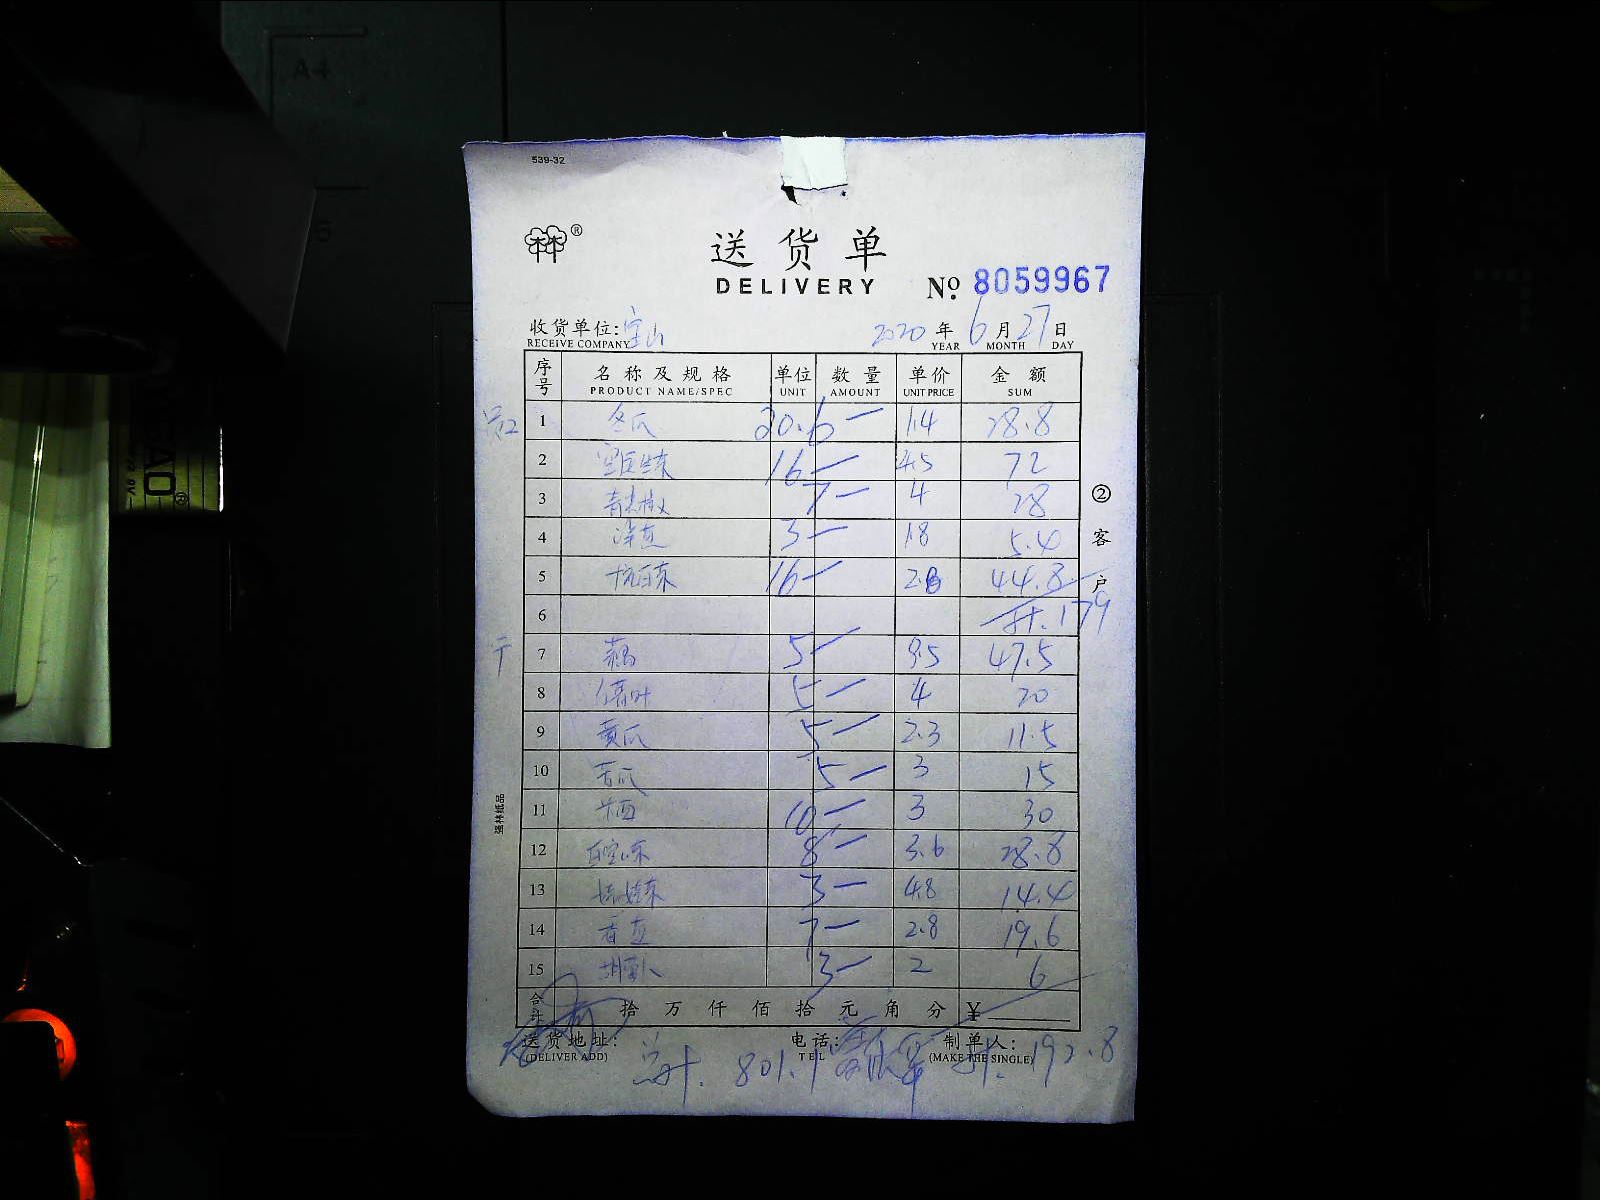 A4
539-32
林®
送货单
DELIVERY
№ 8059967
收货单位: 宝山 2020年6月27日
RECEIVE COMPANY YEAR MONTH DAY
序号 名称及规格 单位 数量 单价 金额
PRODUCT NAME/SPEC UNIT AMOUNT UNIT PRICE SUM
1 冬瓜 20.6 14 28.8
2 16 4.5 72
3 7 4 28
4 洋芋 3 1.8 5.4
5 杭白菜 16 2.8 44.8
6 计.179
7 藕 5 9.5 47.5
8 5 4 20
9 黄瓜 5 2.3 11.5
10 苦瓜 5 3 15
11 10 3 30
12 8 3.6 28.8
13 娃娃菜 3 4.8 14.4
14 7 2.8 19.6
15 胡萝卜 3 2 6
合计 拾万仟佰拾元角分 ¥
送货地址: 电话: 制单人:
(DELIVER ADD) TEL (MAKE THE SINGLE)
总计. 801.1 计. 192.8
②客户
强林纸品